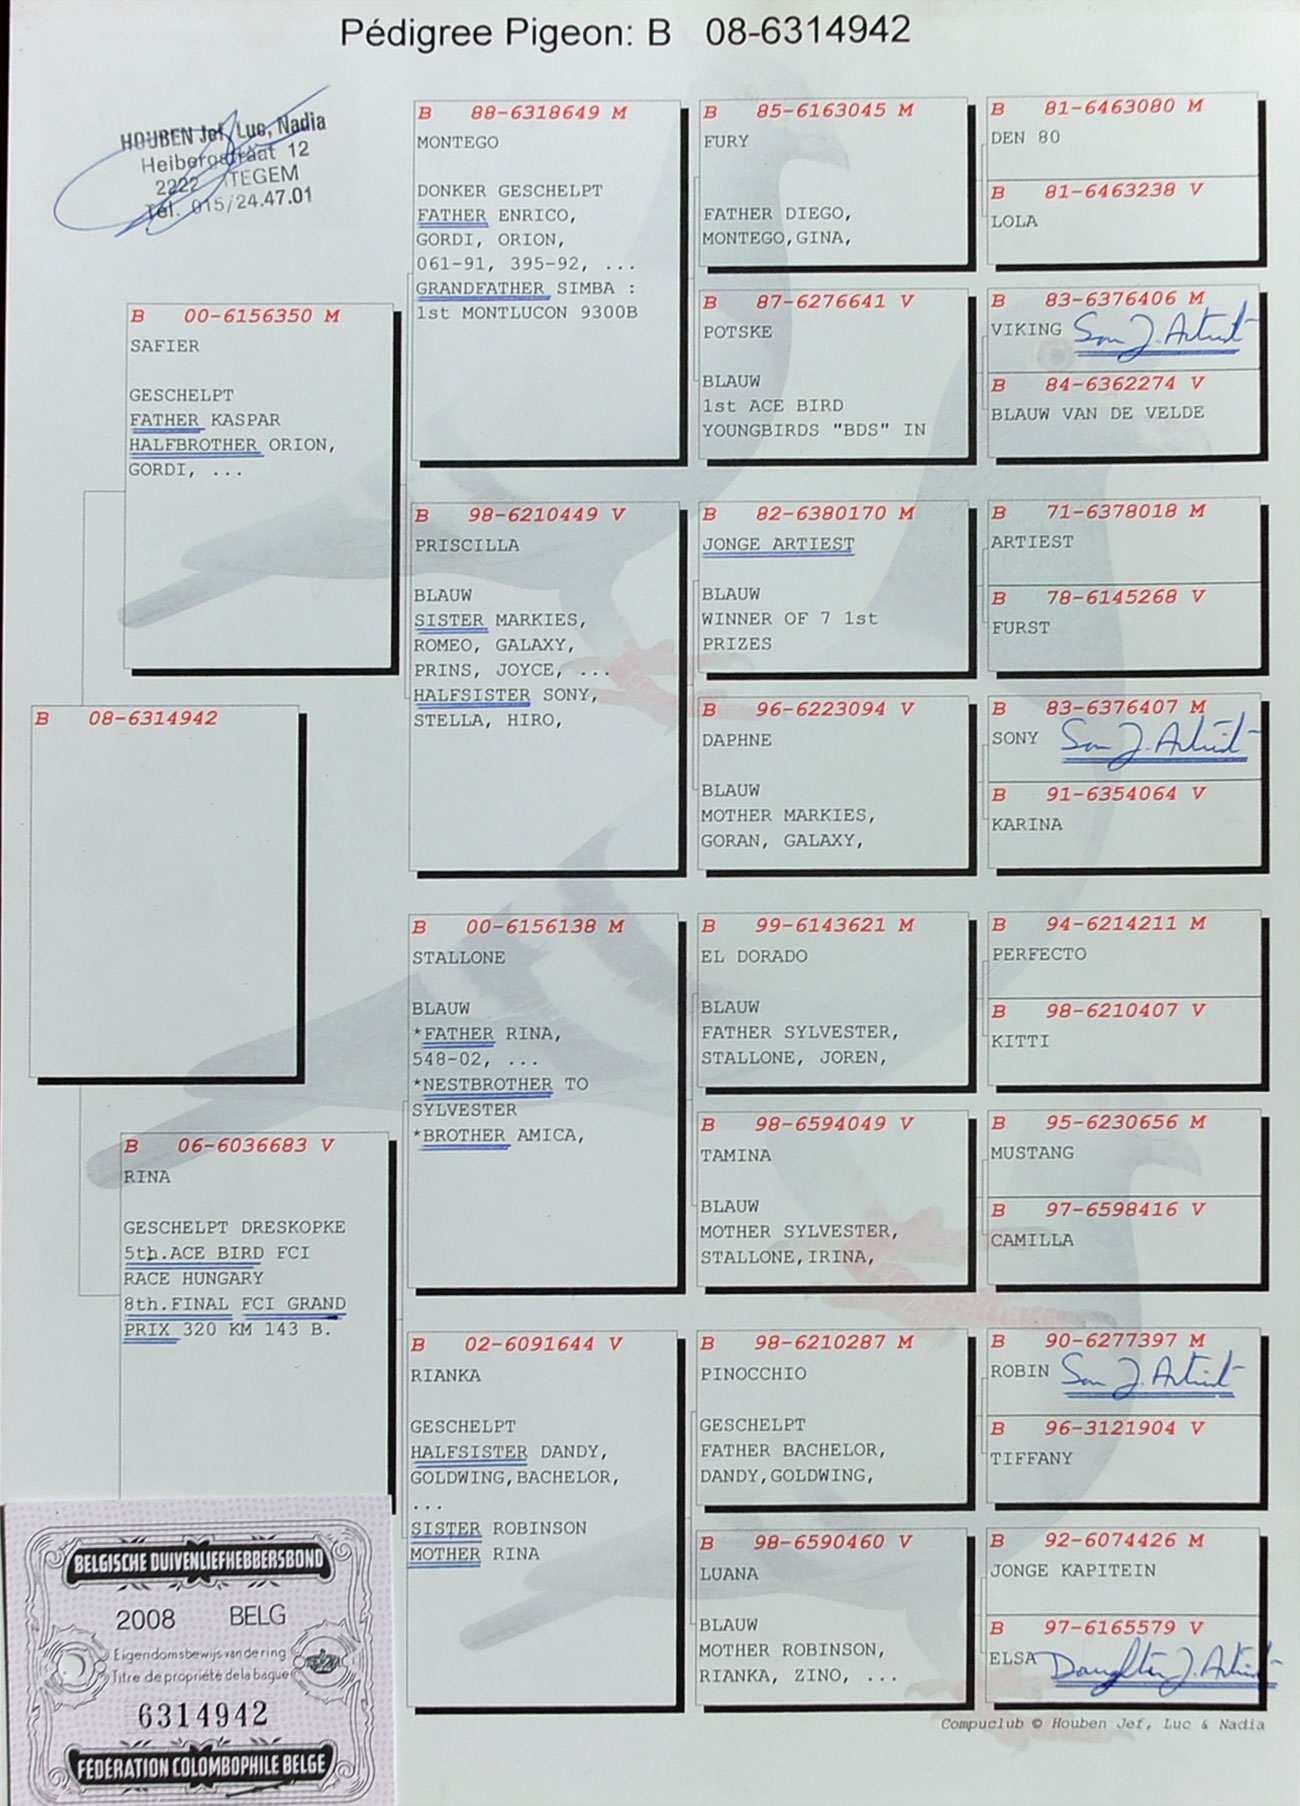 Pédigree Pigeon: B 08-6314942
HOUBEN Jef, Luc, Nadia
Heibergstraat 12
2222 ITEGEM
Tél. 015/24.47.01
B 08-6314942
B 00-6156350 M
SAFIER
GESCHELPT
FATHER KASPAR
HALFBROTHER ORION,
GORDI, ...
B 06-6036683 V
RINA
GESCHELPT DRESKOPKE
5th.ACE BIRD FCI
RACE HUNGARY
8th.FINAL FCI GRAND
PRIX 320 KM 143 B.
B 88-6318649 M
MONTEGO
DONKER GESCHELPT
FATHER ENRICO,
GORDI, ORION,
061-91, 395-92, ...
GRANDFATHER SIMBA :
1st MONTLUCON 9300B
B 98-6210449 V
PRISCILLA
BLAUW
SISTER MARKIES,
ROMEO, GALAXY,
PRINS, JOYCE, ...
HALFSISTER SONY,
STELLA, HIRO,
B 00-6156138 M
STALLONE
BLAUW
*FATHER RINA,
548-02, ...
*NESTBROTHER TO
SYLVESTER
*BROTHER AMICA,
B 02-6091644 V
RIANKA
GESCHELPT
HALFSISTER DANDY,
GOLDWING,BACHELOR,
...
SISTER ROBINSON
MOTHER RINA
B 85-6163045 M
FURY
FATHER DIEGO,
MONTEGO,GINA,
B 87-6276641 V
POTSKE
BLAUW
1st ACE BIRD
YOUNGBIRDS "BDS" IN
B 82-6380170 M
JONGE ARTIEST
BLAUW
WINNER OF 7 1st
PRIZES
B 96-6223094 V
DAPHNE
BLAUW
MOTHER MARKIES,
GORAN, GALAXY,
B 99-6143621 M
EL DORADO
BLAUW
FATHER SYLVESTER,
STALLONE, JOREN,
B 98-6594049 V
TAMINA
BLAUW
MOTHER SYLVESTER,
STALLONE,IRINA,
B 98-6210287 M
PINOCCHIO
GESCHELPT
FATHER BACHELOR,
DANDY,GOLDWING,
B 98-6590460 V
LUANA
BLAUW
MOTHER ROBINSON,
RIANKA, ZINO, ...
B 81-6463080 M
DEN 80
B 81-6463238 V
LOLA
B 83-6376406 M
VIKING Son J. Artiest
B 84-6362274 V
BLAUW VAN DE VELDE
B 71-6378018 M
ARTIEST
B 78-6145268 V
FURST
B 83-6376407 M
SONY Son J. Artiest
B 91-6354064 V
KARINA
B 94-6214211 M
PERFECTO
B 98-6210407 V
KITTI
B 95-6230656 M
MUSTANG
B 97-6598416 V
CAMILLA
B 90-6277397 M
ROBIN Son J. Artiest
B 96-3121904 V
TIFFANY
B 92-6074426 M
JONGE KAPITEIN
B 97-6165579 V
ELSA Daughter J. Artiest
Compuclub © Houben Jef, Luc & Nadia
BELGISCHE DUIVENLIEFHEBBERSBOND
2008 BELG
Eigendomsbewijs van de ring
Titre de propriété de la bague
6314942
FÉDÉRATION COLOMBOPHILE BELGE